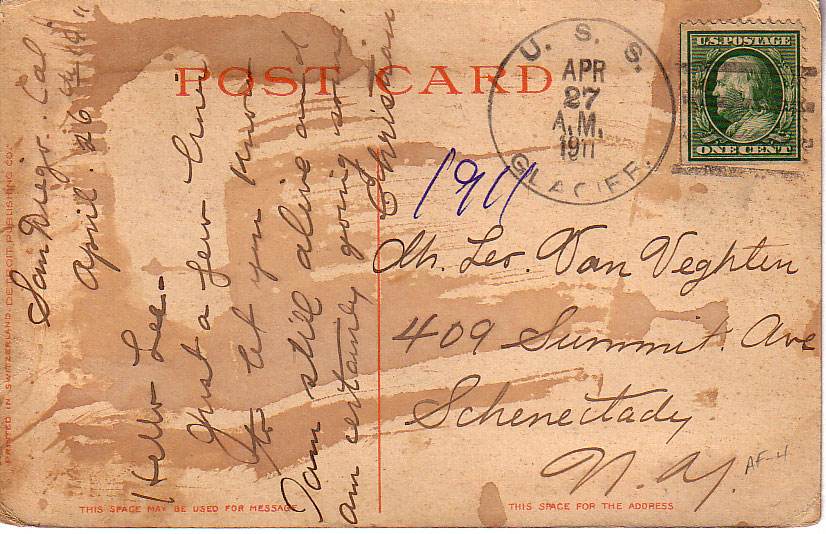 POST CARD
U. S. S.
APR
27
A.M.
1911
GLACIER.
U.S. POSTAGE
ONE CENT
1911
San Diego. Cal
April. 26th 1911
Hello Leo-
Just a few lines
to let you know
I am still alive and
am certainly going so.
Christian
Mr. Leo. Van Veghten
409 Summit. Ave
Schenectady
N. Y.
AF-4
THIS SPACE MAY BE USED FOR MESSAGE
THIS SPACE FOR THE ADDRESS
PRINTED IN SWITZERLAND. DETROIT PUBLISHING CO.